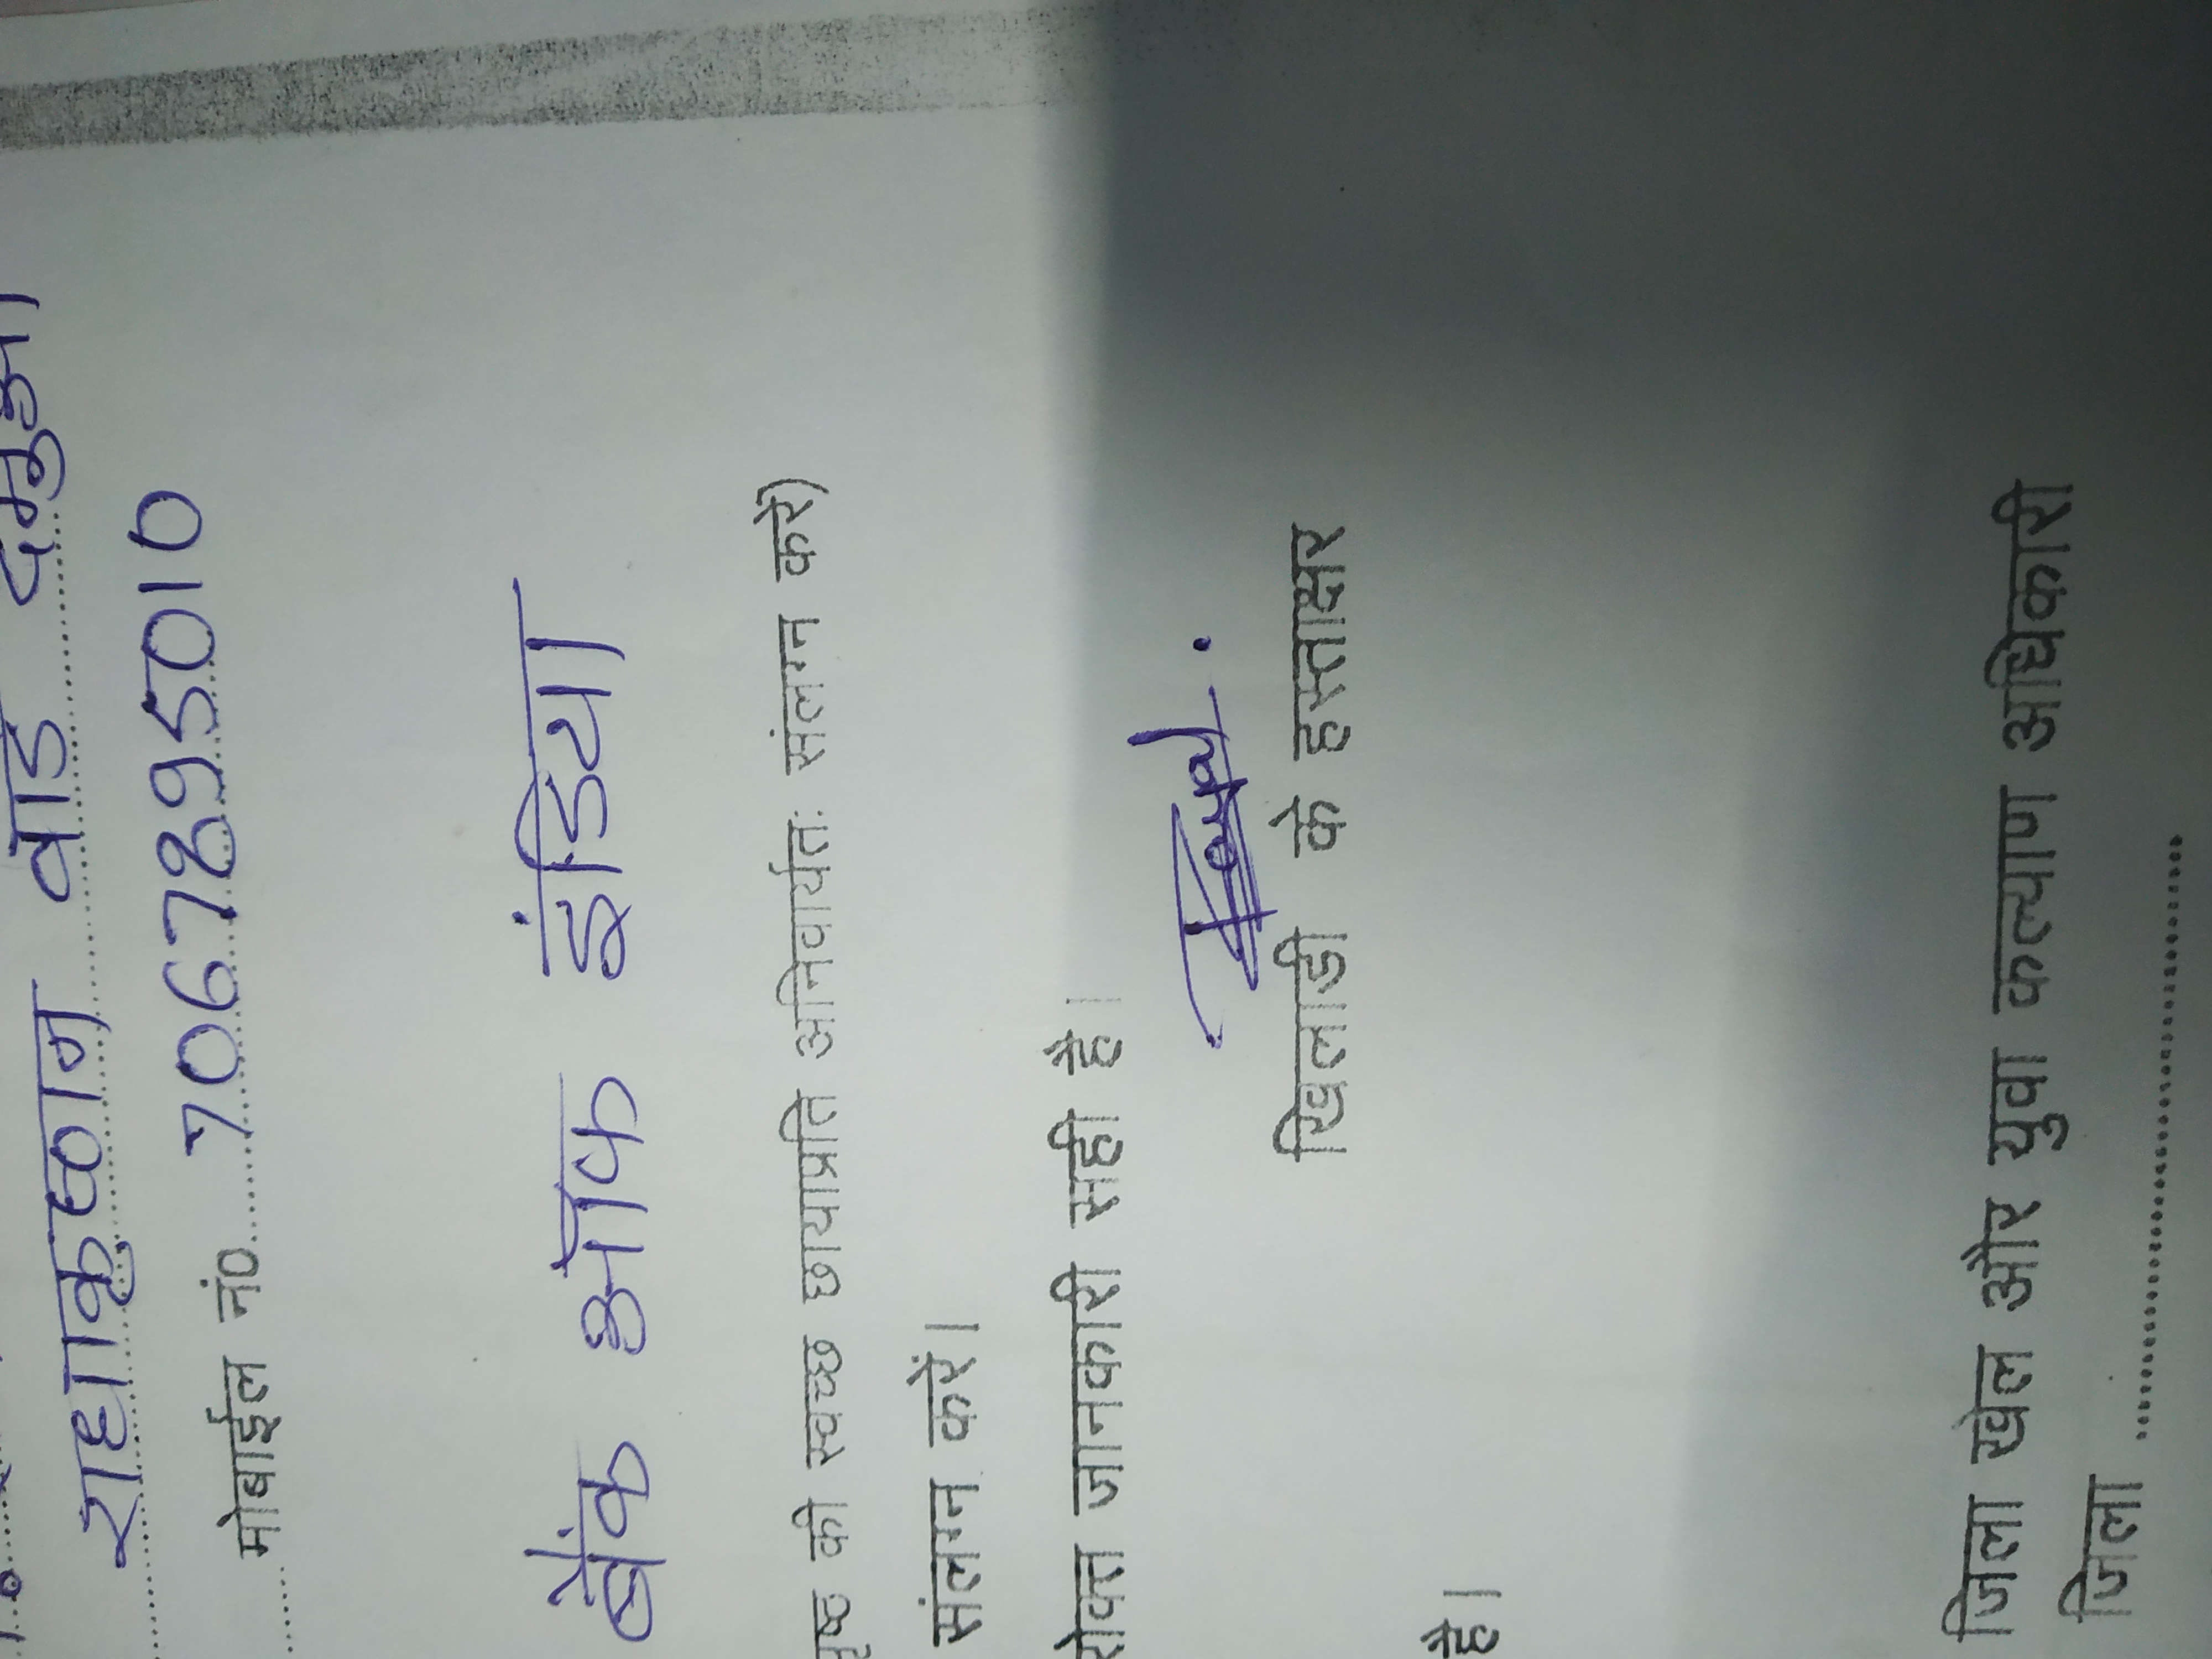 राधाकृष्ण वार्ड दमुआ
मोबाईल नं०. 7067895010
बैंक ऑफ इंडिया
पृष्ठ की स्वच्छ छायाप्रति अनिवार्यतः संलग्न करें)
संलग्न करें।
रोक्त जानकारी सही है।
खिलाडी के हस्ताक्षर
है।
जिला खेल और युवा कल्याण अधिकारी
जिला ........................................